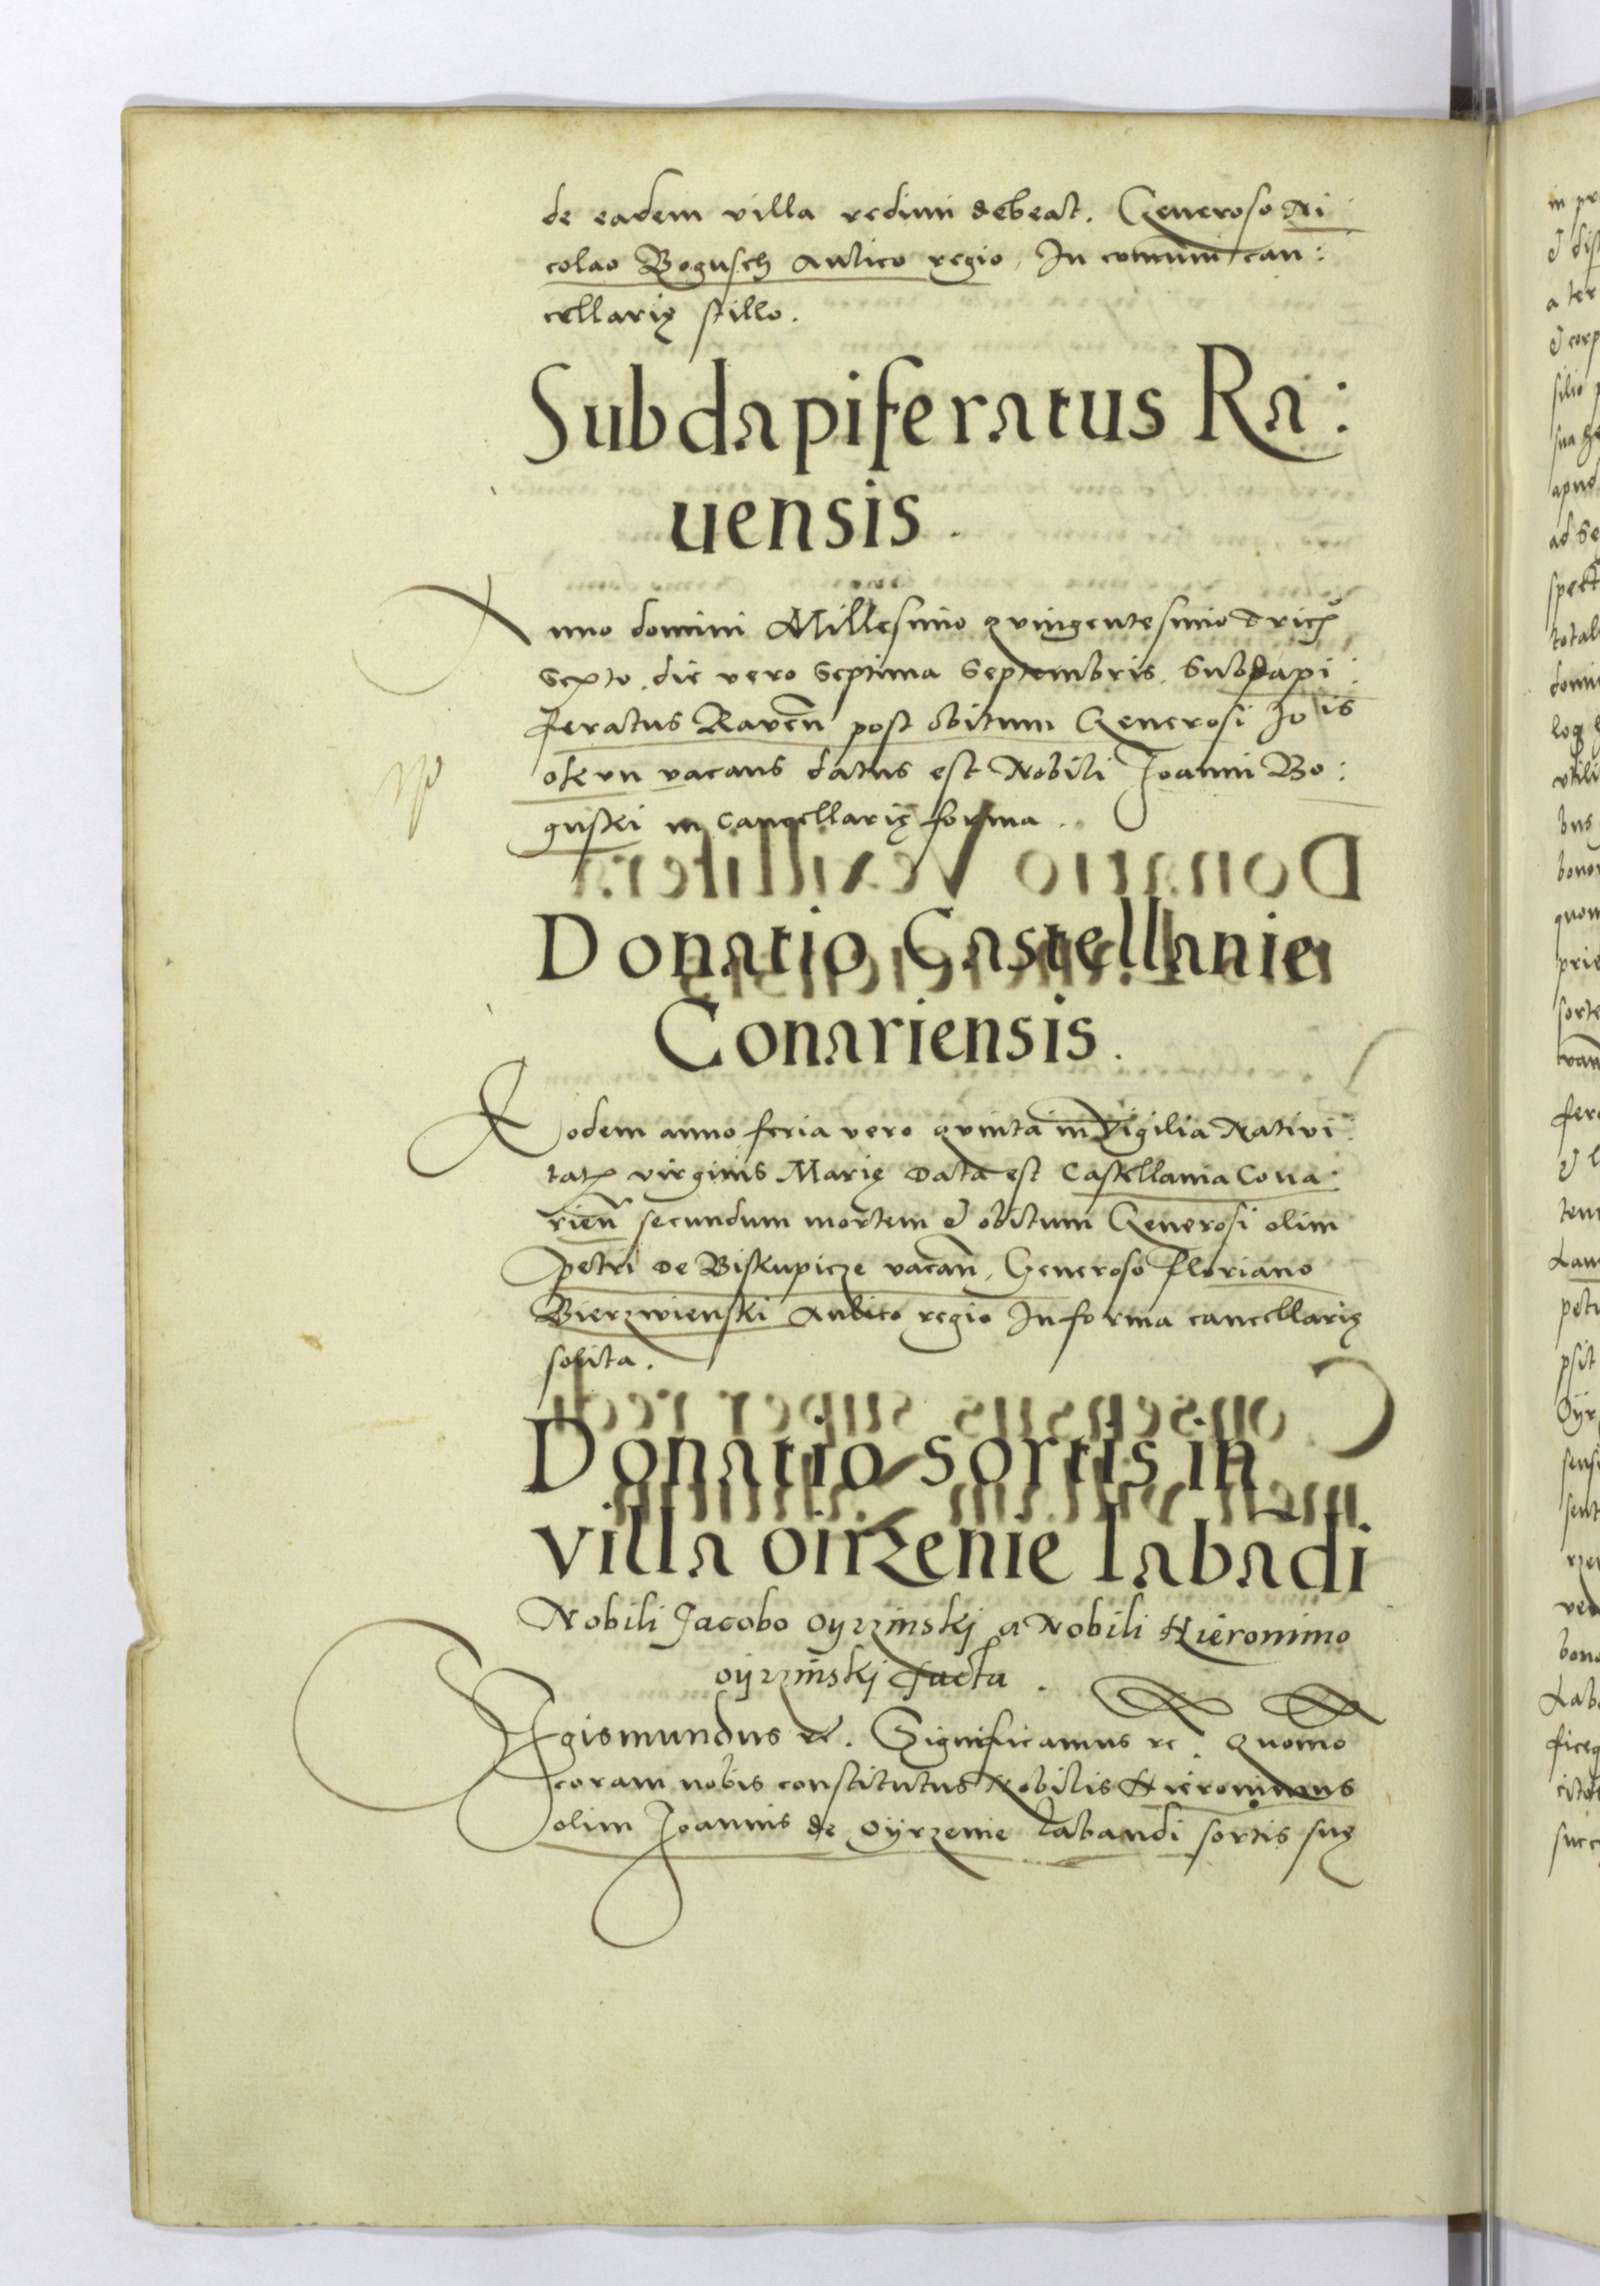 de eadem villa redimi debeat. Generoso Ni
colao Bogusch Aulico regio, In comuni can:
cellarię stillo.
Subdapiferatus Ra:
uensis.
Anno domini Millesimo quingentesimo Tric
Sexto. die vero Septima Septembris. Subdapi:
feratus Raven post obitum Generosi Jo is
okun vacans datus est Nobili Joanni Bo:
guski in Cancellarię forma.
Donatio Castellanie
Conariensis.
Eodem anno feria vero quinta in Vigilia Nativi:
tat virginis Marię Data est Castellania Cona:
rien secundum mortem & obitum Generosi olim
Petri de Biskupicze vacan, Generoso floriano
Bierzwienski Aulico regio In forma cancellarię
solita.
Donatio sortis in
villa oirzenie labadi
Nobili Jacobo oyrzinskj a Nobili Hieronimo
oyrzinskj facta.
Sigismundus rc. Significamus rc. Quomo
coram nobis constitutus Nobilis Hieronimus
olim Joannis de Oyrzenie Labandi sortis suę